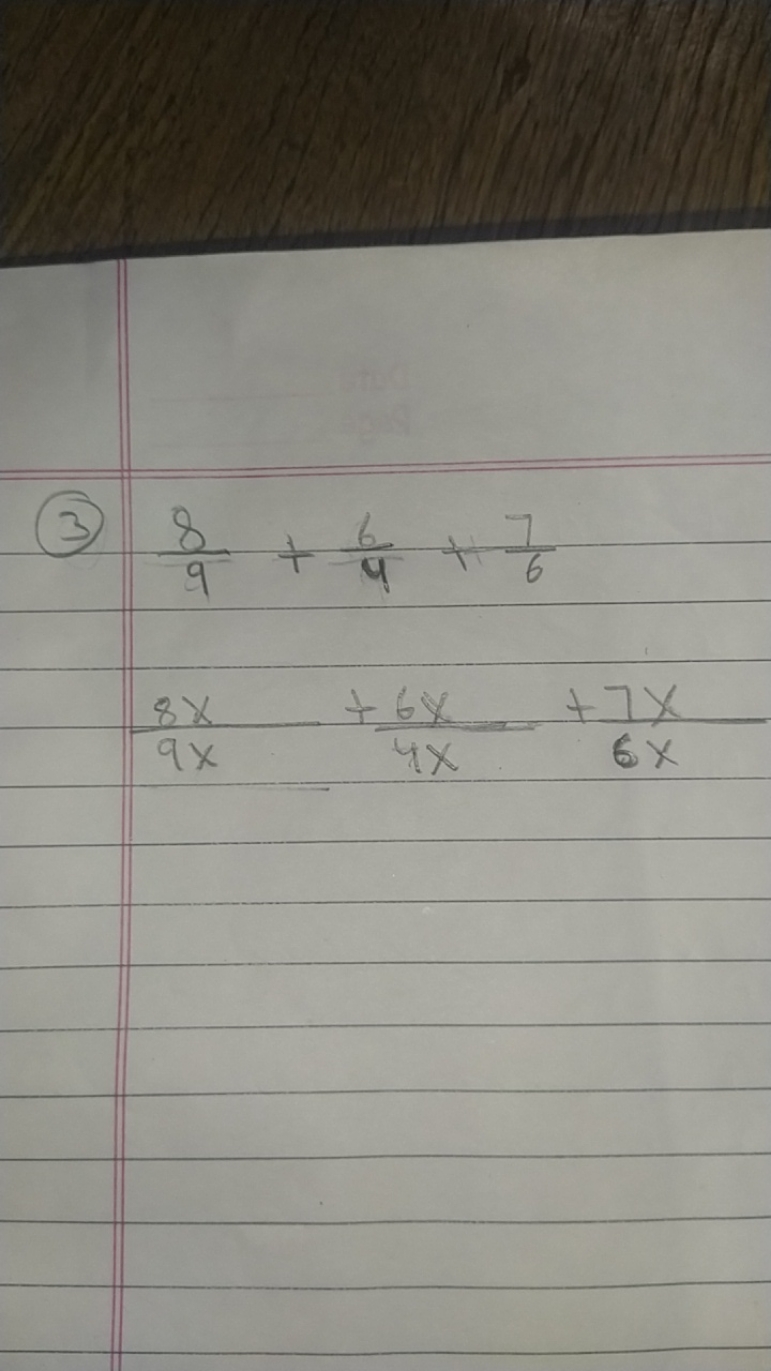 ③ 8/9 + 6/4 + 7/6
8x/9x + 6x/4x + 7x/6x